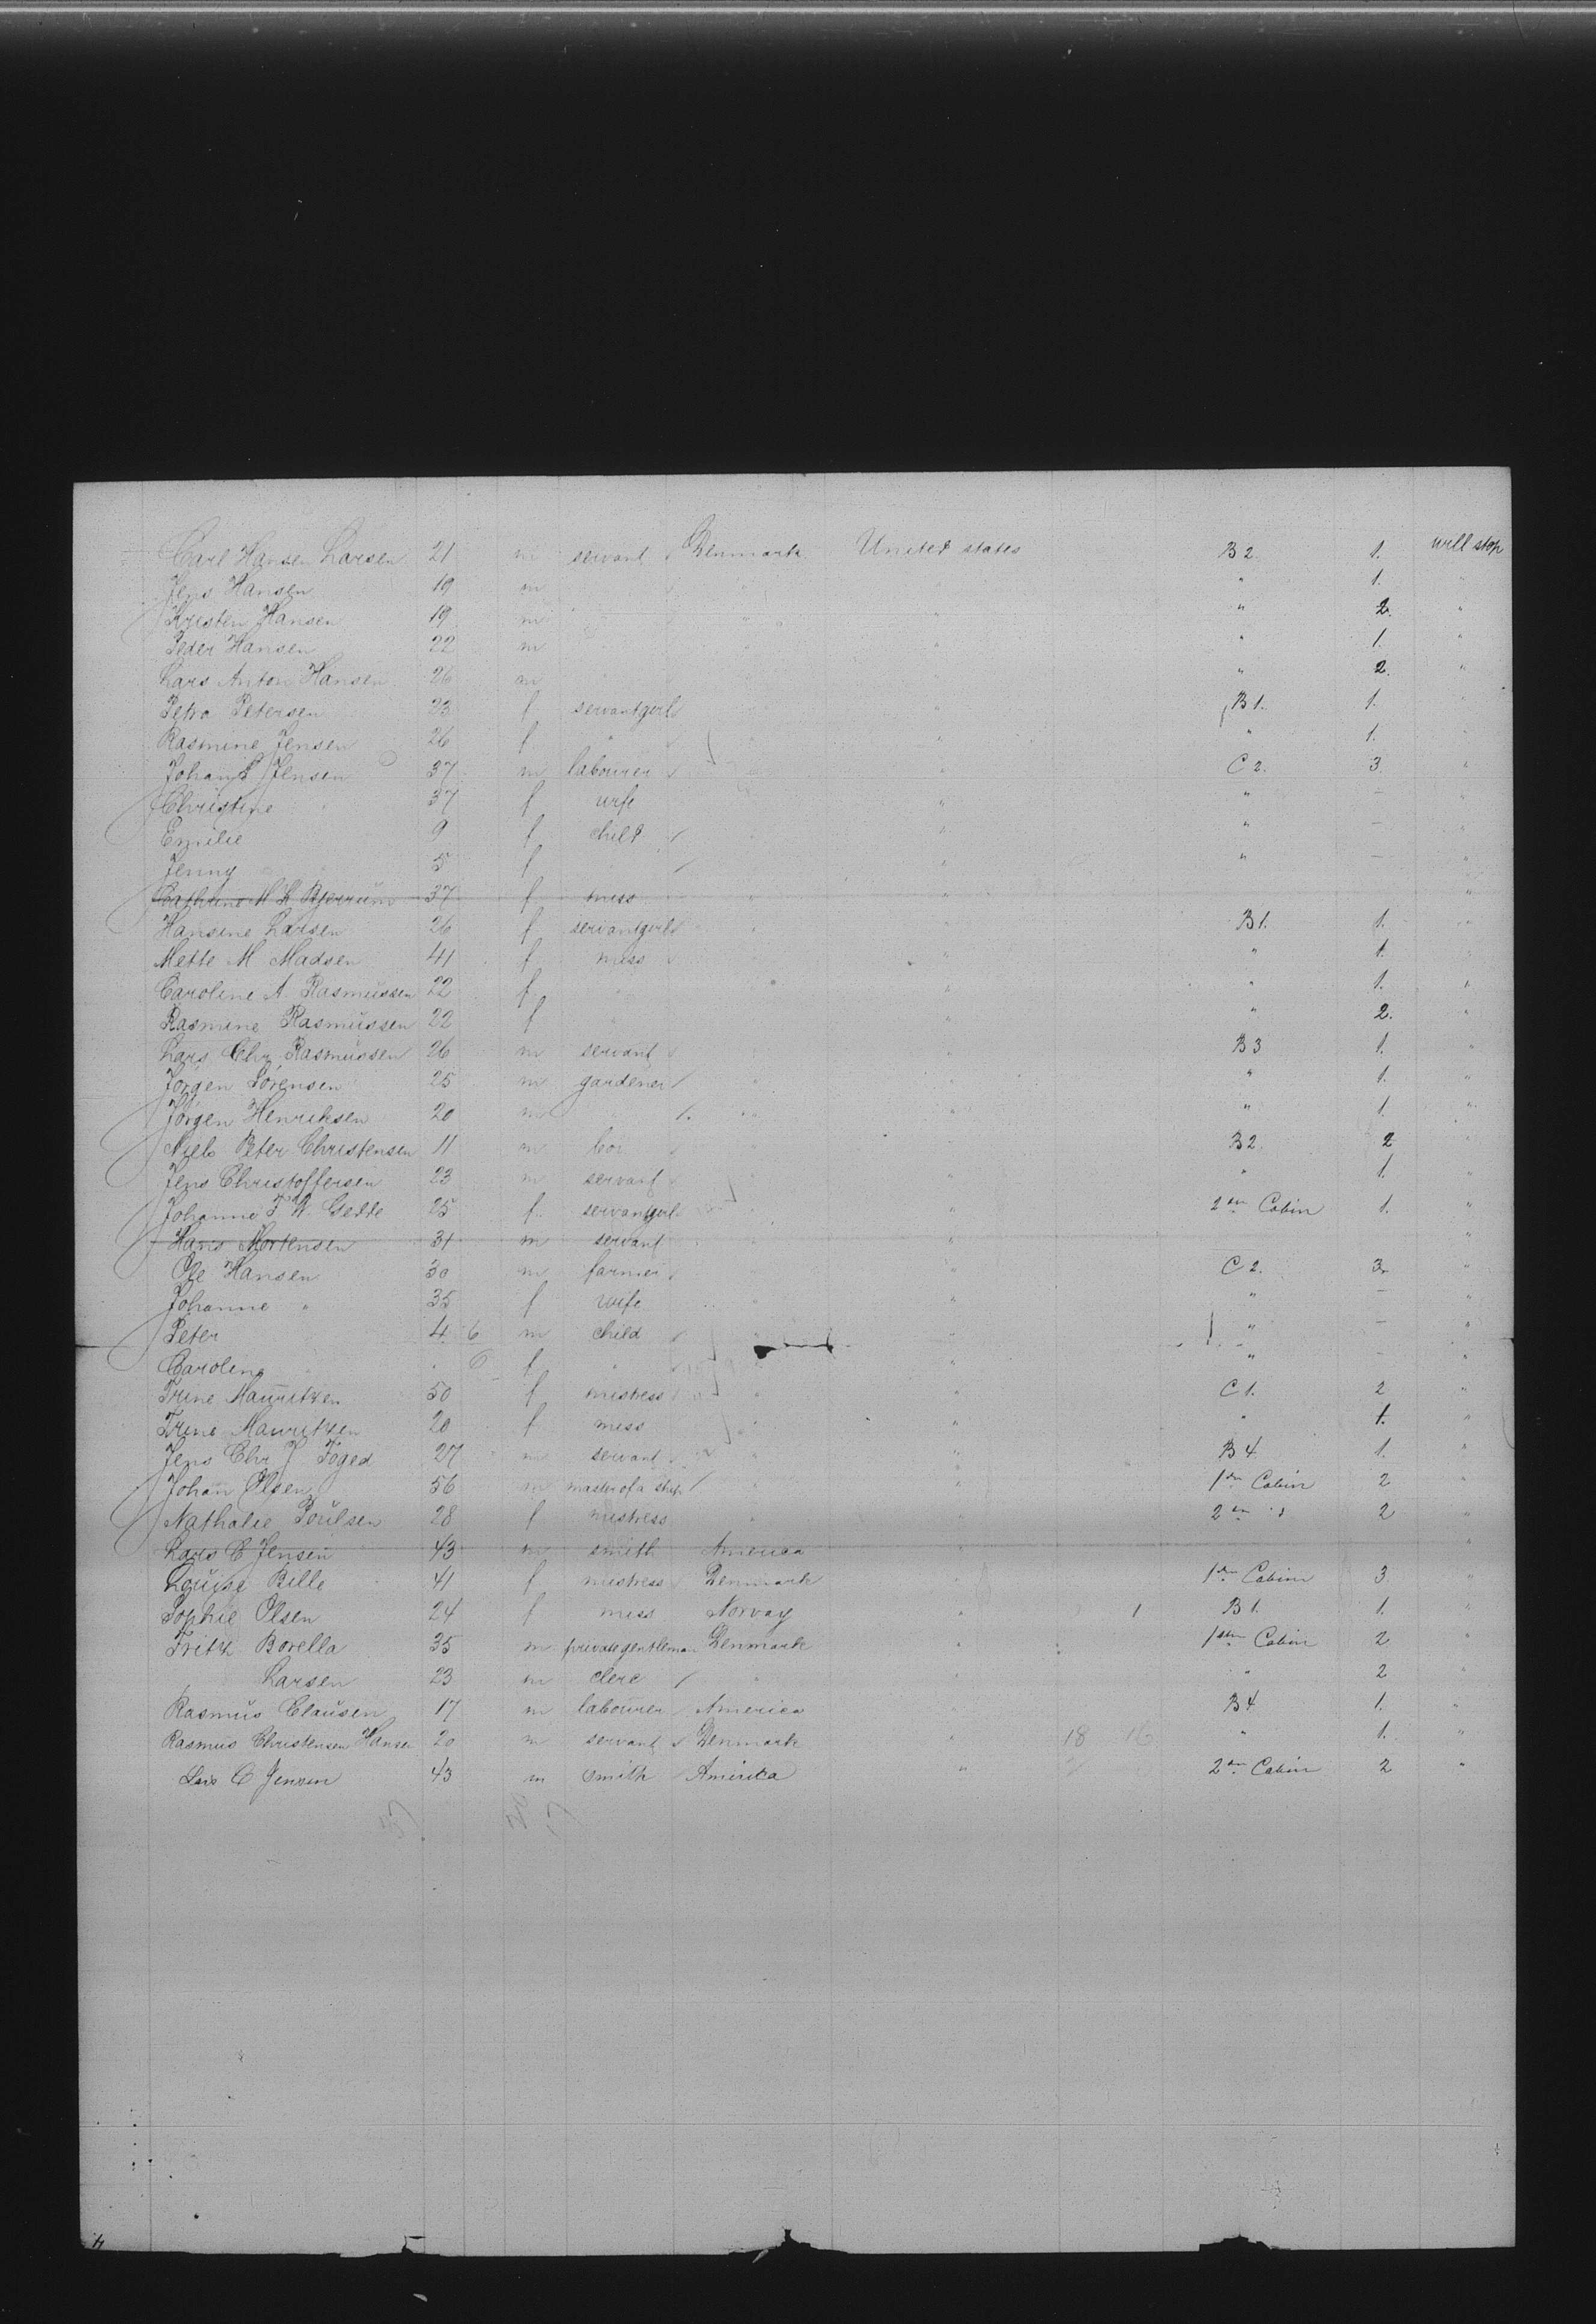 Carl Hansen Larsen 21 m servant Denmark United states B 2. 1. will stop
Jens Hansen 19 m " 1. "
Kresten Hansen 19 m " " 2. "
Peder Hansen 22 m " " 1. "
Lars Anton Hansen 26 m " 2. "
Petra Petersen 23 f servantgerl " B 1. 1. "
Rasmine Jensen 26 f " " " 1. "
Johan Jensen 37 m labourer " C 2. 3 "
Christine " 37 f wife " " – "
Emilie 9 f child " " – "
Jenny 5 f " " – "
Cathrine M K Bjerrum 37 f miss " "
Hansine Larsen 26 f servantgerl " B 1. 1. "
Mette M Madsen 41 f miss " " 1. "
Caroline A. Rasmussen 22 f " " " 1. "
Rasmine Rasmussen 22 f " " 2. "
Lars Chr. Rasmussen 26 m servant " B 3 1. "
Jörgen Sörensen 25 m gardener " " " 1. "
Jörgen Henriksen 20 m " " " 1. "
Niels Peter Christensen 11 m boi B 2. 2 "
Jens Christoffersen 23 m servant " " 1. "
Johanne F W. Gedde 25 f servantgerl " 2en Cabin 1. "
Hans Mortensen 31 m servant " "
Ole Hansen 30 m farmer " C 2. 3. "
Johanne " 35 f wife " " " – "
Peter 4 6 m child " " " – "
Caroline 6 f " " " – "
Trine Mauritzen 50 f mistress " " C 1. 2 "
Trine Mauritzen 20 f miss " " " 1. "
Jens Chr J Foged 27 m servant " " B 4 1. "
Johan Olsen 56 m master of a ship " " Cabin 2 "
Nathalie Poulsen 28 f mistress " 2en " 2 "
Lars C Jensen 43 m smith America " "
Louise Bille 41 f mistress Denmark " Cabin 3 "
Sophie Olsen 24 f miss Norvay " 1 B 1. 1. "
Fritz Borella 35 m private gentleman Denmark " Cabin 2 "
Larsen 23 m clerc " " " 2 "
Rasmus Clausen 17 m labourer America " B 4 1. "
Rasmus Christensen Hansen 20 m servant Denmark " 18 16 " 1. "
Lars C Jensen 43 m smith America " 2en Cabin 2 "
37 20 17